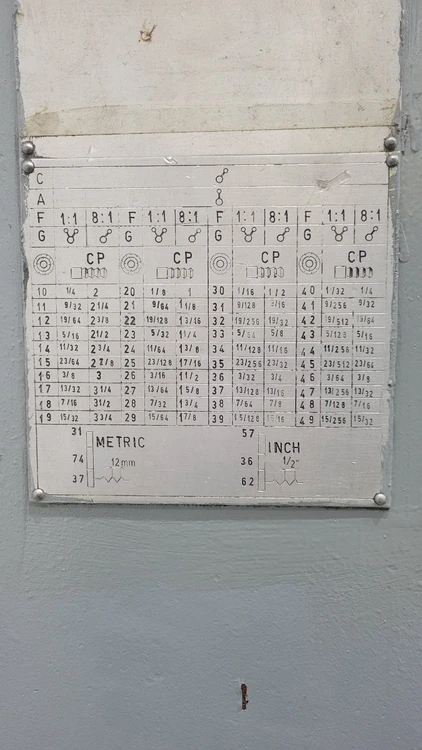 C
A
F 1:1 8:1 F 1:1 8:1 F 1:1 8:1 F 1:1 8:1
G G G G
CP CP CP CP
10 1/4 2 20 1/8 1 30 1/16 1/2 40 1/32 1/4
11 9/32 21/4 21 9/64 11/8 31 9/128 9/16 41 9/256 9/32
12 19/64 23/8 22 19/128 13/16 32 19/256 19/32 42 19/512 19/64
13 5/16 21/2 23 5/32 11/4 33 5/64 5/8 43 5/128 5/16
14 11/32 23/4 24 11/64 13/8 34 11/128 11/16 44 11/256 11/32
15 23/64 27/8 25 23/128 17/16 35 23/256 23/32 45 23/512 23/64
16 3/8 3 26 3/16 11/2 36 3/32 3/4 46 3/64 3/8
17 13/32 31/4 27 13/64 15/8 37 13/128 13/16 47 13/256 13/32
18 7/16 31/2 28 7/32 13/4 38 7/64 7/8 48 7/128 7/16
19 15/32 33/4 29 15/64 17/8 39 15/128 15/16 49 15/256 15/32
31 METRIC 57 INCH
74 12mm 36 1/2"
37 62